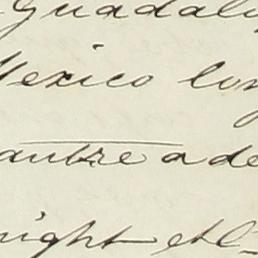 Guadalu
Mexico lon
autre a de
night et l